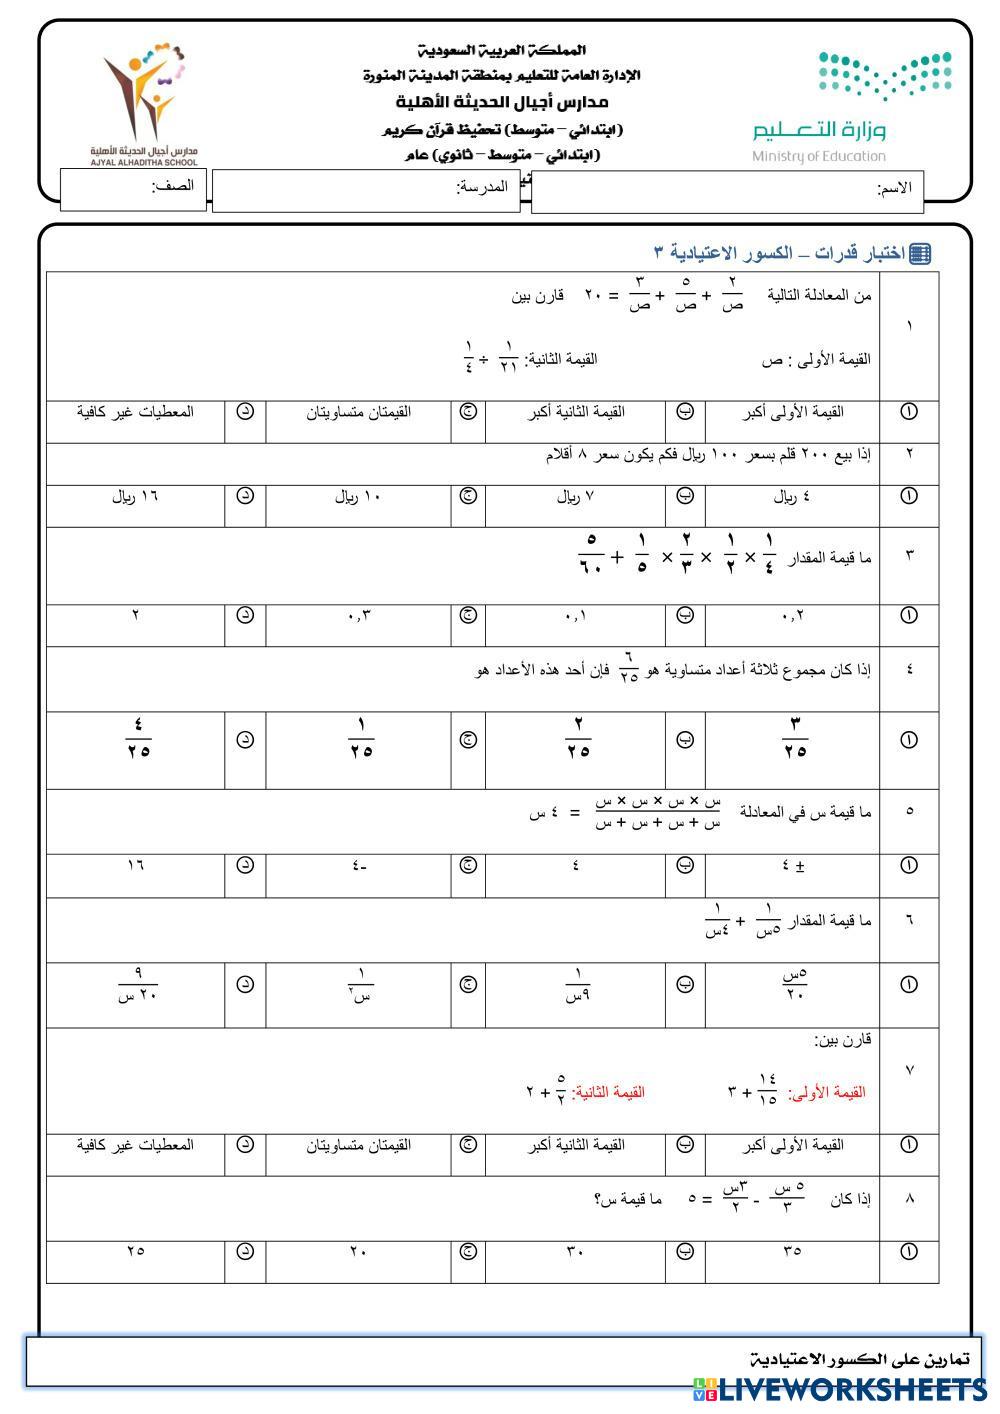 المملكة العربية السعودية
الإدارة العامة للتعليم بمنطقة المدينة المنورة
مدارس أجيال الحديثة الأهلية
(ابتدائي – متوسط) تحفيظ قرآن كريم
(ابتدائي – متوسط – ثانوي) عام
وزارة التعليم
Ministry of Education
مدارس أجيال الحديثة الأهلية
AJYAL ALHADITHA SCHOOL
الاسم:
المدرسة:
الصف:
اختبار قدرات – الكسور الاعتيادية ٣
١ من المعادلة التالية ٢/ص + ٥/ص + ٣/ص = ٢٠ قارن بين
القيمة الأولى : ص القيمة الثانية: ١/٢١ ÷ ١/٤
أ القيمة الأولى أكبر ب القيمة الثانية أكبر ج القيمتان متساويتان د المعطيات غير كافية
٢ إذا بيع ٢٠٠ قلم بسعر ١٠٠ ريال فكم يكون سعر ٨ أقلام
أ ٤ ريال ب ٧ ريال ج ١٠ ريال د ١٦ ريال
٣ ما قيمة المقدار ١/٤ × ١/٢ × ٢/٣ × ١/٥ + ٥/٦٠
أ ٠,٢ ب ٠,١ ج ٠,٣ د ٢
٤ إذا كان مجموع ثلاثة أعداد متساوية هو ٦/٢٥ فإن أحد هذه الأعداد هو
أ ٣/٢٥ ب ٢/٢٥ ج ١/٢٥ د ٤/٢٥
٥ ما قيمة س في المعادلة س × س × س × س / س + س + س + س = ٤ س
أ ± ٤ ب ٤ ج -٤ د ١٦
٦ ما قيمة المقدار ١/٥س + ١/٤س
أ ٥س/٢٠ ب ١/٩س ج ١/س٢ د ٩/٢٠ س
٧ قارن بين:
القيمة الأولى: ١٤/١٥ + ٣ القيمة الثانية: ٥/٢ + ٢
أ القيمة الأولى أكبر ب القيمة الثانية أكبر ج القيمتان متساويتان د المعطيات غير كافية
٨ إذا كان ٥ س/٣ - ٣س/٢ = ٥ ما قيمة س؟
أ ٣٥ ب ٣٠ ج ٢٠ د ٢٥
تمارين على الكسور الاعتيادية
LIVE LIVEWORKSHEETS